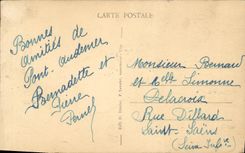 CARTE POSTALE
Bonnes
amitiés de
Pont-Audemer
Bernadette et
Pierre
Monsieur Bernard
et Mlle Simonne
Delacroix
Rue
Saint-Saëns
Seine Infre